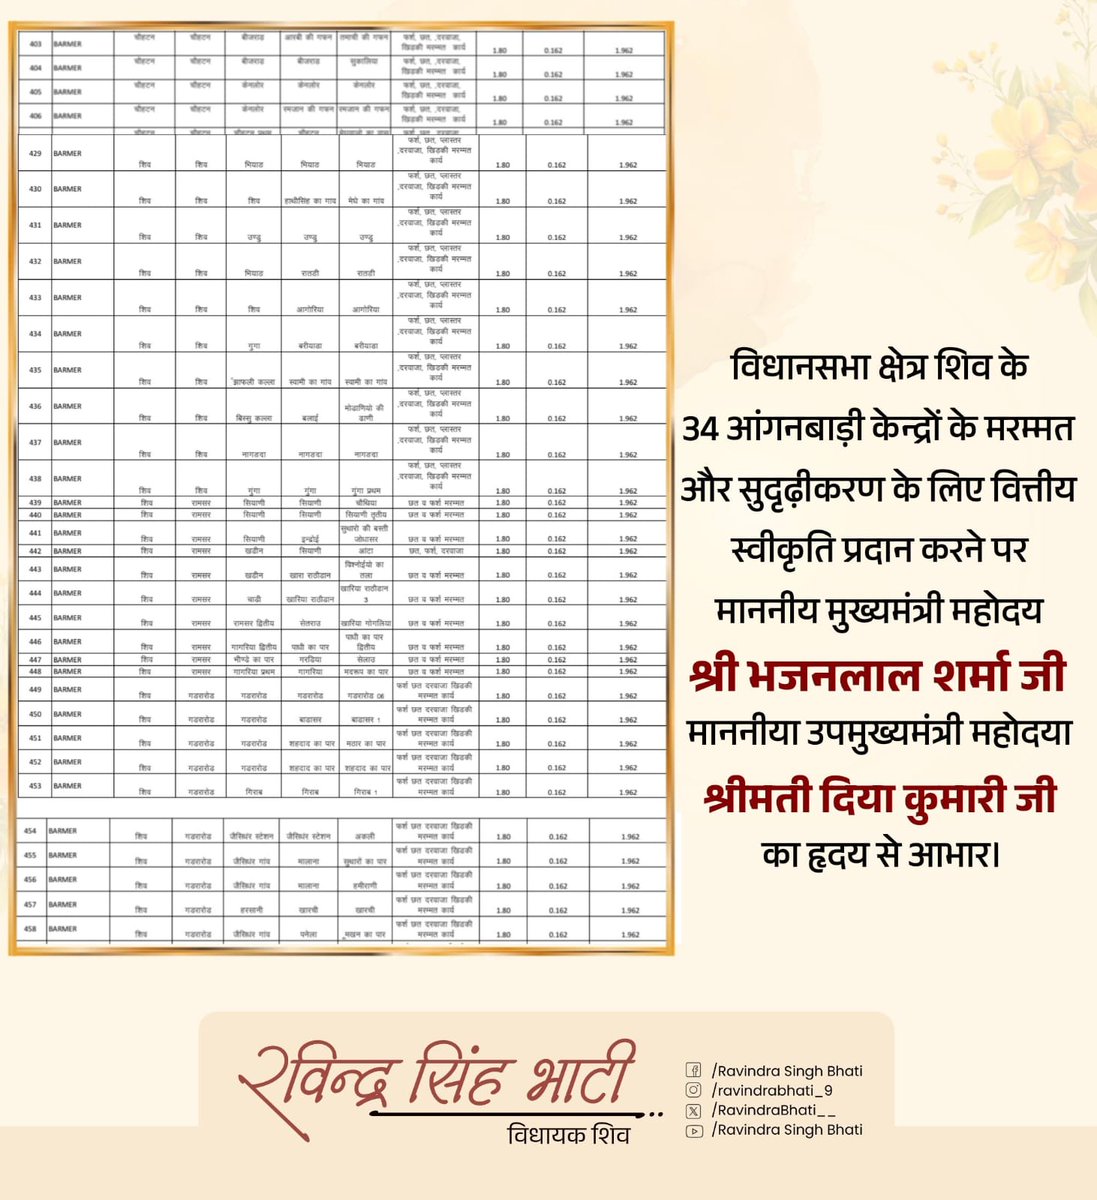 403 BARMER चौहटन चौहटन बीजराड़ आरबी की गफन तमाची की गफन फर्श, छत, ,दरवाजा, खिडकी मरम्मत कार्य 1.80 0.162 1.962
404 BARMER चौहटन चौहटन बीजराड़ बीजराड़ सुकालिया फर्श, छत, ,दरवाजा, खिडकी मरम्मत कार्य 1.80 0.162 1.962
405 BARMER चौहटन चौहटन केलनोर केलनोर केलनोर फर्श, छत, ,दरवाजा, खिडकी मरम्मत कार्य 1.80 0.162 1.962
406 BARMER चौहटन चौहटन केलनोर रमजान की गफन रमजान की गफन फर्श, छत, ,दरवाजा, खिडकी मरम्मत कार्य 1.80 0.162 1.962
429 BARMER शिव शिव भियाड भियाड भियाड फर्श, छत, प्लास्तर ,दरवाजा, खिडकी मरम्मत कार्य 1.80 0.162 1.962
430 BARMER शिव शिव शिव हाथीसिंह का गाव मेघे का गांव फर्श, छत, प्लास्तर ,दरवाजा, खिडकी मरम्मत कार्य 1.80 0.162 1.962
431 BARMER शिव शिव उण्डु उण्डु उण्डु फर्श, छत, प्लास्तर ,दरवाजा, खिडकी मरम्मत कार्य 1.80 0.162 1.962
432 BARMER शिव शिव भियाड रातडी रातडी फर्श, छत, प्लास्तर ,दरवाजा, खिडकी मरम्मत कार्य 1.80 0.162 1.962
433 BARMER शिव शिव शिव आगोरिया आगोरिया फर्श, छत, प्लास्तर ,दरवाजा, खिडकी मरम्मत कार्य 1.80 0.162 1.962
434 BARMER शिव शिव गुंगा बरीयाडा बरीयाडा फर्श, छत, प्लास्तर ,दरवाजा, खिडकी मरम्मत कार्य 1.80 0.162 1.962
435 BARMER शिव शिव झाफली कल्ला स्वामी का गांव स्वामी का गांव फर्श, छत, प्लास्तर ,दरवाजा, खिडकी मरम्मत कार्य 1.80 0.162 1.962
436 BARMER शिव शिव बिस्सु कल्ला बलाई मोढाणियो की ढाणी फर्श, छत, प्लास्तर ,दरवाजा, खिडकी मरम्मत कार्य 1.80 0.162 1.962
437 BARMER शिव शिव नागडदा नागडदा नागडदा फर्श, छत, प्लास्तर ,दरवाजा, खिडकी मरम्मत कार्य 1.80 0.162 1.962
438 BARMER शिव शिव गुंगा गुंगा गुंगा प्रथम फर्श, छत, प्लास्तर ,दरवाजा, खिडकी मरम्मत कार्य 1.80 0.162 1.962
439 BARMER शिव रामसर सियाणी सियाणी चौथिया छत व फर्श मरम्मत 1.80 0.162 1.962
440 BARMER शिव रामसर सियाणी सियाणी सियाणी तृतीय छत व फर्श मरम्मत 1.80 0.162 1.962
441 BARMER शिव रामसर सियाणी इन्द्रोई सुथारो की बस्ती जोधासर छत व फर्श मरम्मत 1.80 0.162 1.962
442 BARMER शिव रामसर खडीन सियाणी आंटा छत, फर्श, दरवाजा 1.80 0.162 1.962
443 BARMER शिव रामसर खडीन खारा राठौडान विश्नोईयो का तला छत व फर्श मरम्मत 1.80 0.162 1.962
444 BARMER शिव रामसर चाडी खारिया राठौडान खारिया राठौडान 3 छत व फर्श मरम्मत 1.80 0.162 1.962
445 BARMER शिव रामसर रामसर द्वितीय सेतराउ खारिया गोगलिया छत व फर्श मरम्मत 1.80 0.162 1.962
446 BARMER शिव रामसर गागरिया द्वितीय पाधी का पार पाधी का पार द्वितीय छत व फर्श मरम्मत 1.80 0.162 1.962
447 BARMER शिव रामसर भीण्डे का पार गरडिया सेलाउ छत व फर्श मरम्मत 1.80 0.162 1.962
448 BARMER शिव रामसर गागरिया प्रथम गागरिया मदरूप का पार छत व फर्श मरम्मत 1.80 0.162 1.962
449 BARMER शिव गडरारोड गडरारोड गडरारोड गडरारोड 06 फर्श छत दरवाजा खिडकी मरम्मत कार्य 1.80 0.162 1.962
450 BARMER शिव गडरारोड गडरारोड बाडासर बाडासर 1 फर्श छत दरवाजा खिडकी मरम्मत कार्य 1.80 0.162 1.962
451 BARMER शिव गडरारोड गडरारोड शहदाद का पार मठार का पार फर्श छत दरवाजा खिडकी मरम्मत कार्य 1.80 0.162 1.962
452 BARMER शिव गडरारोड गडरारोड शहदाद का पार शहदाद का पार फर्श छत दरवाजा खिडकी मरम्मत कार्य 1.80 0.162 1.962
453 BARMER शिव गडरारोड गिराब गिराब गिराब 1 फर्श छत दरवाजा खिडकी मरम्मत कार्य 1.80 0.162 1.962
454 BARMER शिव गडरारोड जैसिंधर स्टेशन जैसिंधर स्टेशन अकली फर्श छत दरवाजा खिडकी मरम्मत कार्य 1.80 0.162 1.962
455 BARMER शिव गडरारोड जैसिंधर गांव मालाना सुथारों का पार फर्श छत दरवाजा खिडकी मरम्मत कार्य 1.80 0.162 1.962
456 BARMER शिव गडरारोड जैसिंधर गांव मालाना हमीराणी फर्श छत दरवाजा खिडकी मरम्मत कार्य 1.80 0.162 1.962
457 BARMER शिव गडरारोड हरसानी खारची खारची फर्श छत दरवाजा खिडकी मरम्मत कार्य 1.80 0.162 1.962
458 BARMER शिव गडरारोड जैसिंधर गांव पनेला मूखन का पार फर्श छत दरवाजा खिडकी मरम्मत कार्य 1.80 0.162 1.962
विधानसभा क्षेत्र शिव के
34 आंगनबाड़ी केन्द्रों के मरम्मत
और सुदृढ़ीकरण के लिए वित्तीय
स्वीकृति प्रदान करने पर
माननीय मुख्यमंत्री महोदय
श्री भजनलाल शर्मा जी
माननीया उपमुख्यमंत्री महोदया
श्रीमती दिया कुमारी जी
का हृदय से आभार।
रविन्द्र सिंह भाटी
विधायक शिव
/Ravindra Singh Bhati
/ravindrabhati_9
/RavindraBhati__
/Ravindra Singh Bhati